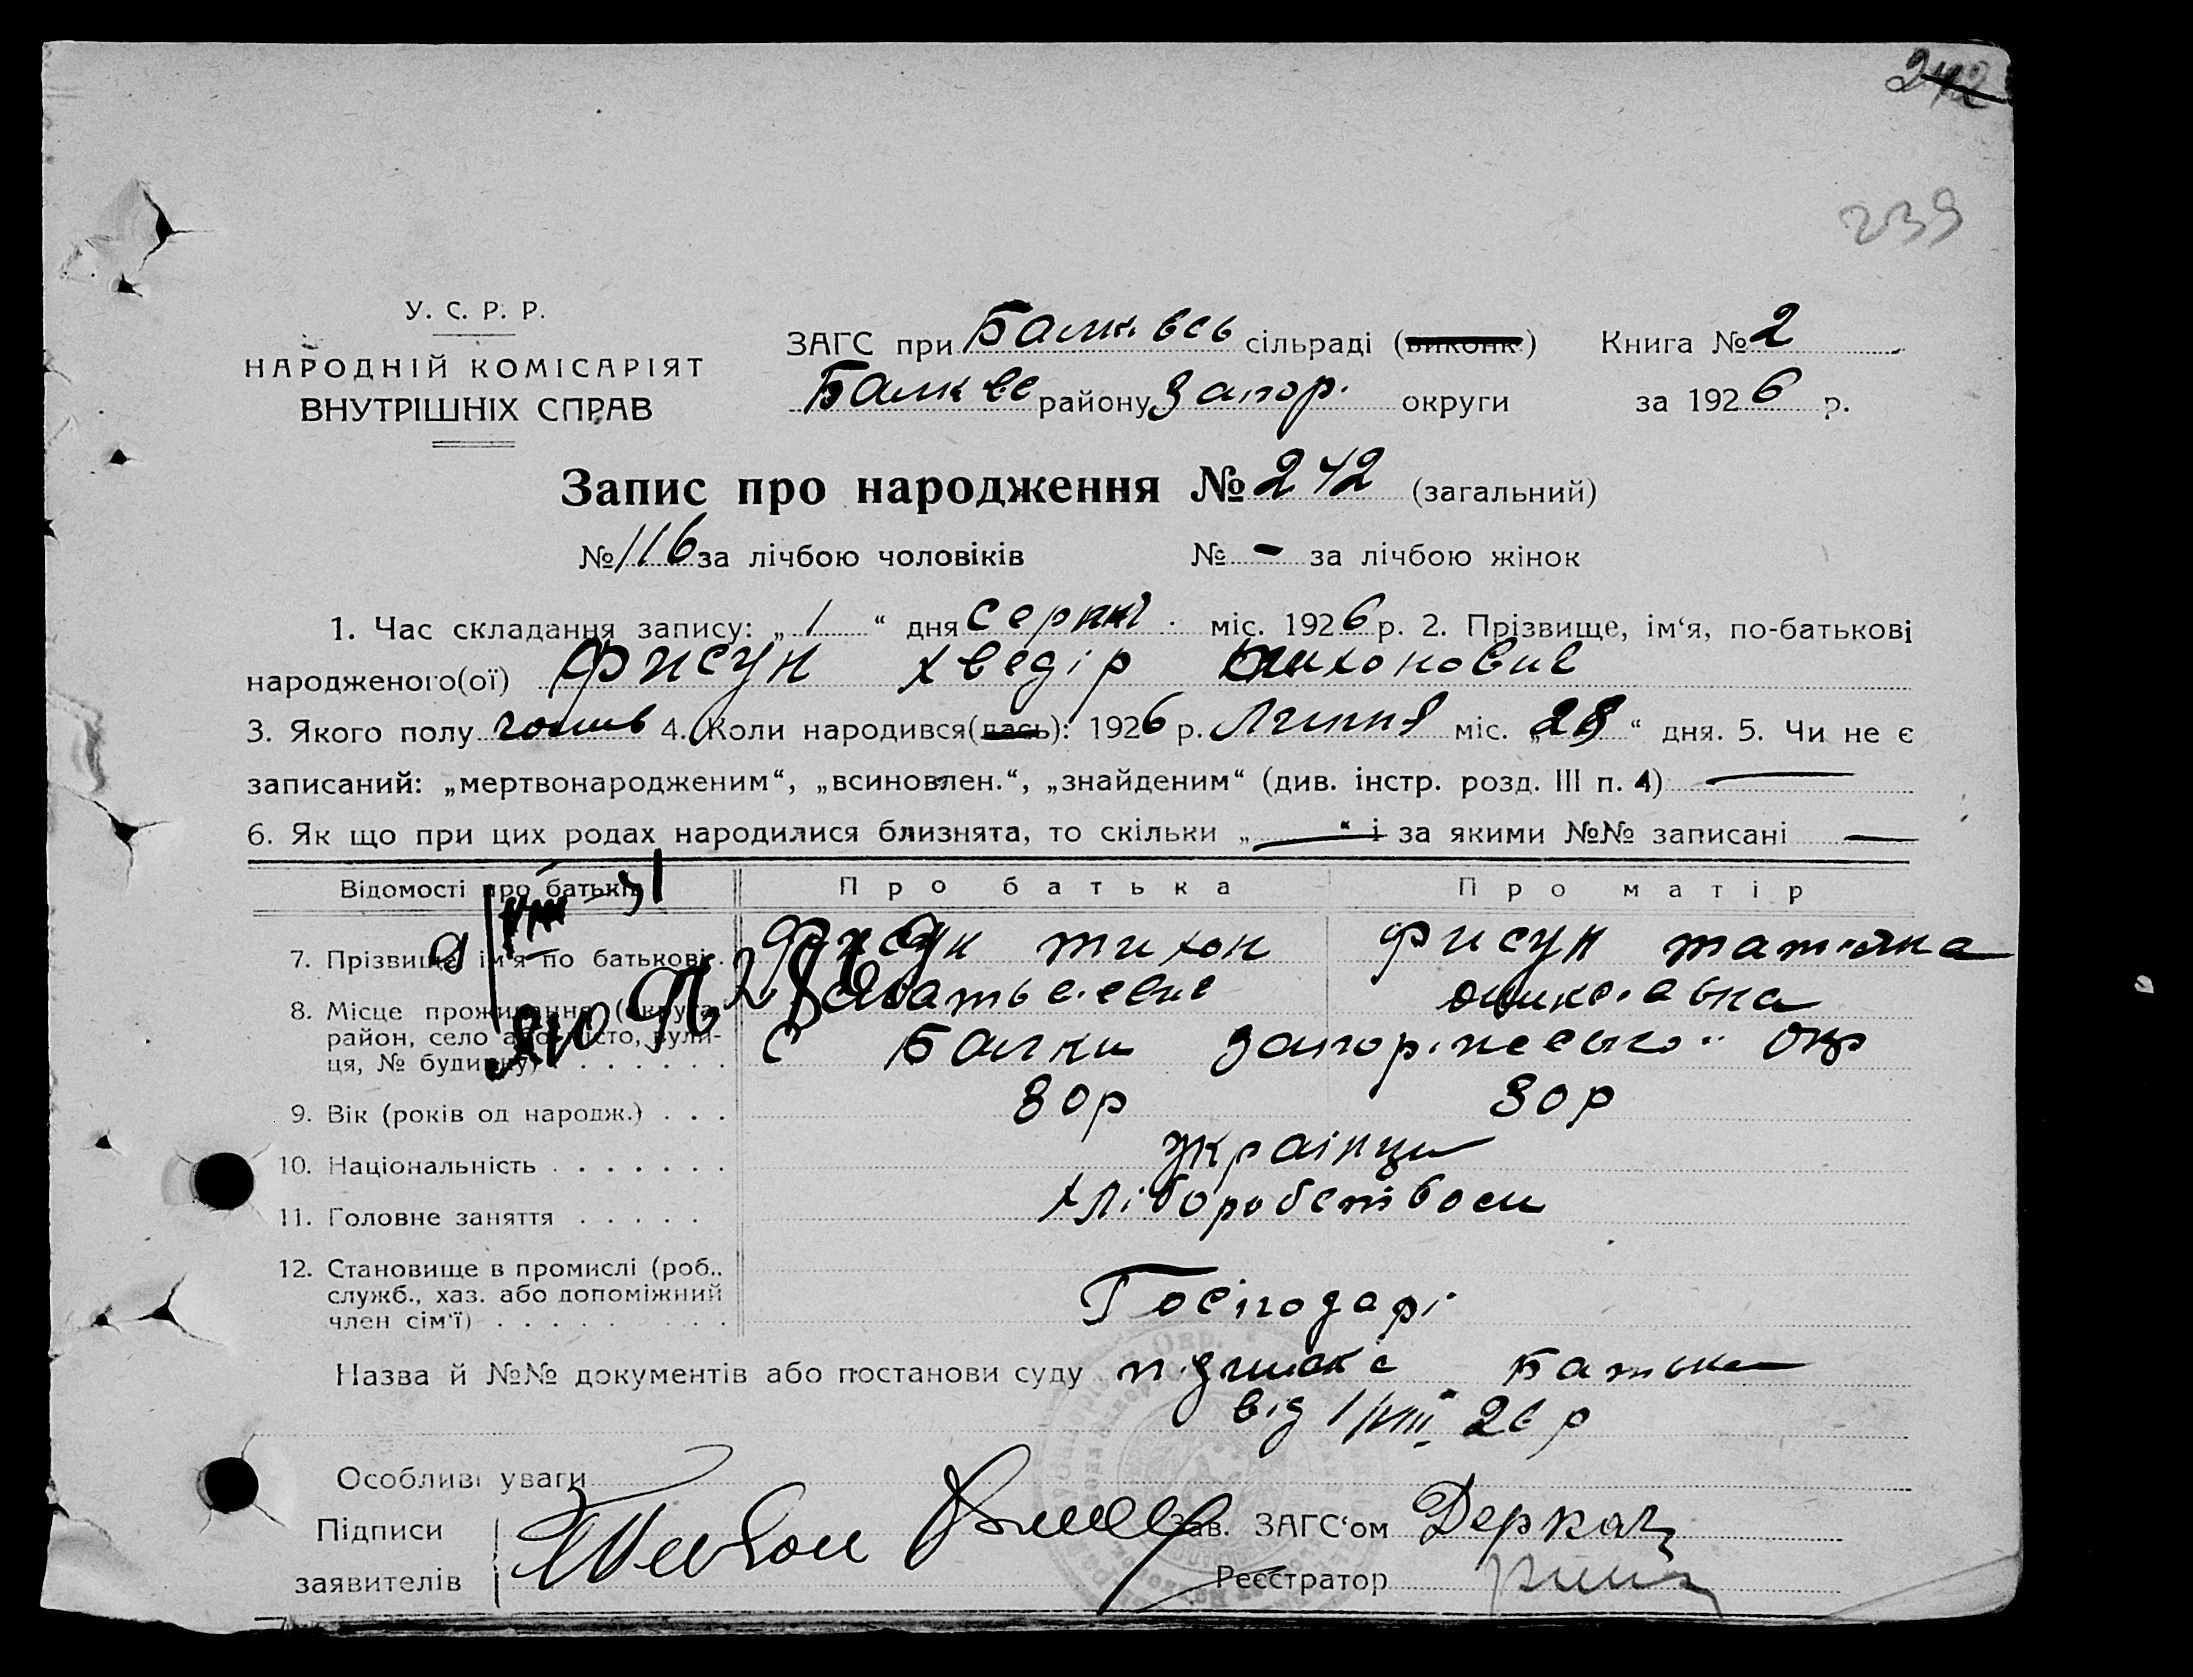 242
239
У. С. Р. Р.
НАРОДНІЙ КОМІСАРІЯТ
ВНУТРІШНІХ СПРАВ
ЗАГС при Балківсь сільраді (виконк.) Книга № 2
Балківс району Запор. округи за 1926 р.
Запис про народження № 242 (загальний)
№ 116 за лічбою чоловіків № - за лічбою жінок
1. Час складання запису: „ 1 “ дня серпня міс. 1926 р. 2. Прізвище, ім‘я, по-батькові
народженого(ої) Фисун Хведір Тихонович
3. Якого полу чолов 4. Коли народився(лась): 1926 р. Липня міс. „ 28 “ дня. 5. Чи не є
записаний: „мертвонародженим“, „всиновлен.“, „знайденим“ (див. інстр. розд. III п. 4) —
6. Як що при цих родах народилися близнята, то скільки „ — “ і за якими №№ записані —
Відомості про батьків Про батька Про матір
7. Прізвище ім‘я по батькові . Фисун Тихон Фисун Татяна
8. Місце проживання (округа,
район, село або місто, вули-
ця, № будинку) . . . . . . . с Балки Запоріжської Окр
9. Вік (років од народж.) . . . 30 р 30 р
10. Національність . . . . . . . українці
11. Головне заняття . . . . . Хліборобством
12. Становище в промислі (роб.,
служб., хаз. або допоміжний
член сім‘ї) . . . . . . . . . Господарі
Назва й №№ документів або постанови суду Батька
від 1/VIII 26 р
Особливі уваги
Підписи
заявителів
Зав. ЗАГС‘ом Деркач
Реєстратор